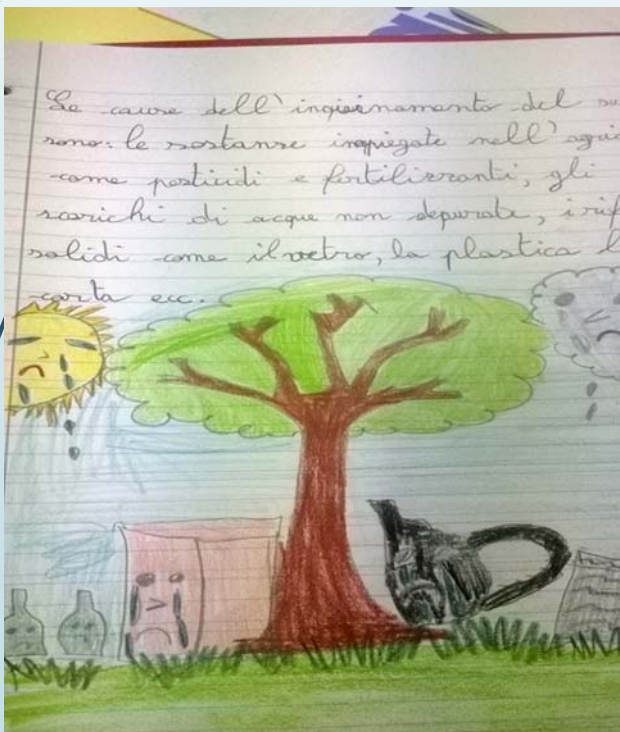 Le cause dell'inquinamento del su
sono: le sostanze impiegate nell'agri
come pesticidi e fertilizzanti, gli
scarichi di acque non depurate, i rif
solidi come il vetro, la plastica l
carta ecc.